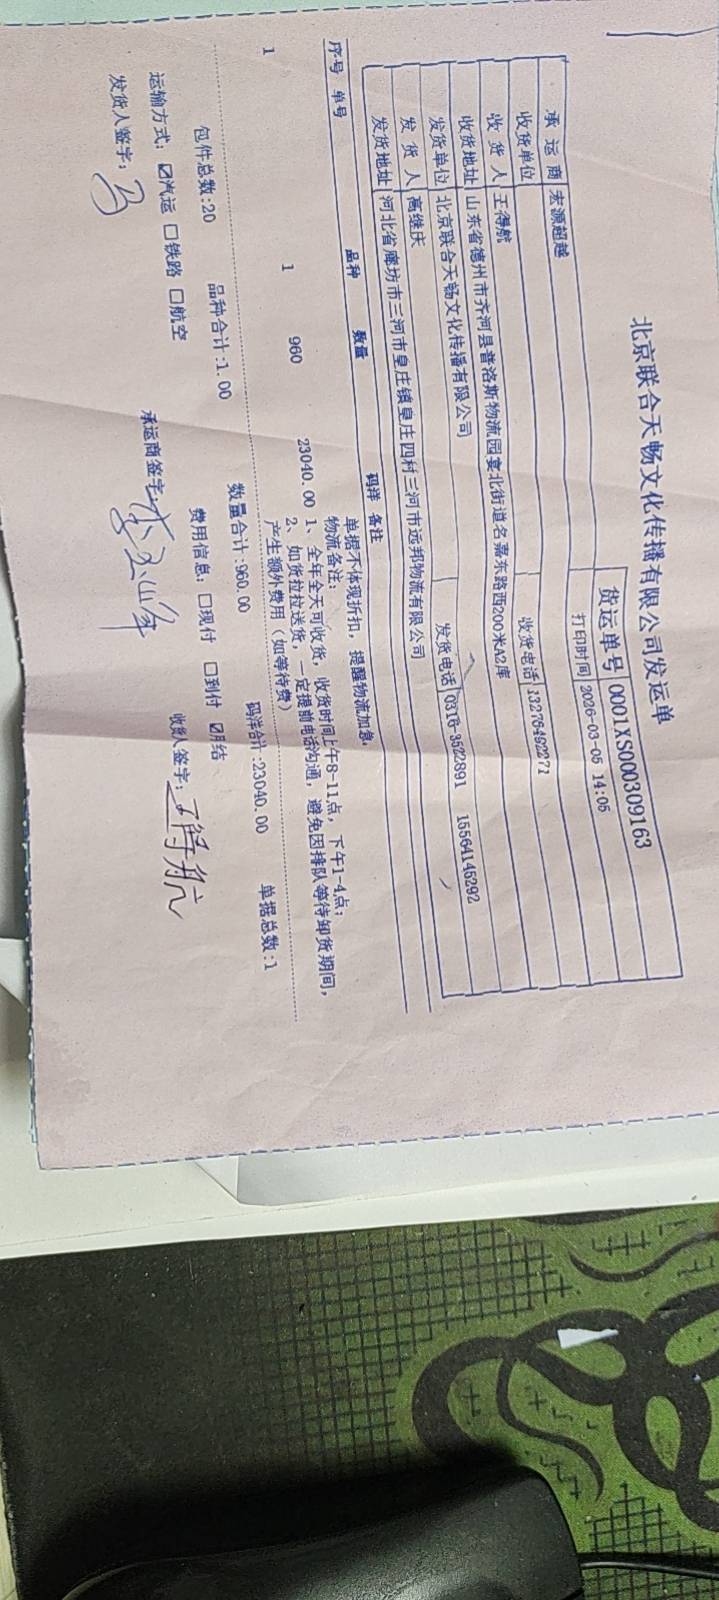 北京联合天畅文化传播有限公司发运单
货运单号 0001XS000309163
打印时间 2026-03-05 14:05
承运商 宏源超越
收货单位
收货人 王得航 收货电话 13276492271
收货地址 山东省德州市齐河县普洛斯物流园宴北街道名嘉东路西200米A2库
发货单位 北京联合天畅文化传播有限公司 发货电话 0316-3522891 15564145292
发货人 高继庆
发货地址 河北省廊坊市三河市皇庄镇皇庄四村三河市远邦物流有限公司
序号 单号 品种 数量 码洋 备注
1 1 960 23040.00
单据不体现折扣,提醒物流加急.
物流备注:
1、全年全天可收货,收货时间上午8-11点,下午1-4点;
2、如货拉拉送货,一定提前电话沟通,避免因排队等待卸货期间,
产生额外费用(如等待费)
包件总数:20 品种合计:1.00 数量合计:960.00 码洋合计:23040.00 单据总数:1
运输方式: ☑汽运 □铁路 □航空 费用信息: □现付 □到付 ☑月结
发货人签字: 承运商签字: 收货人签字: 王得航